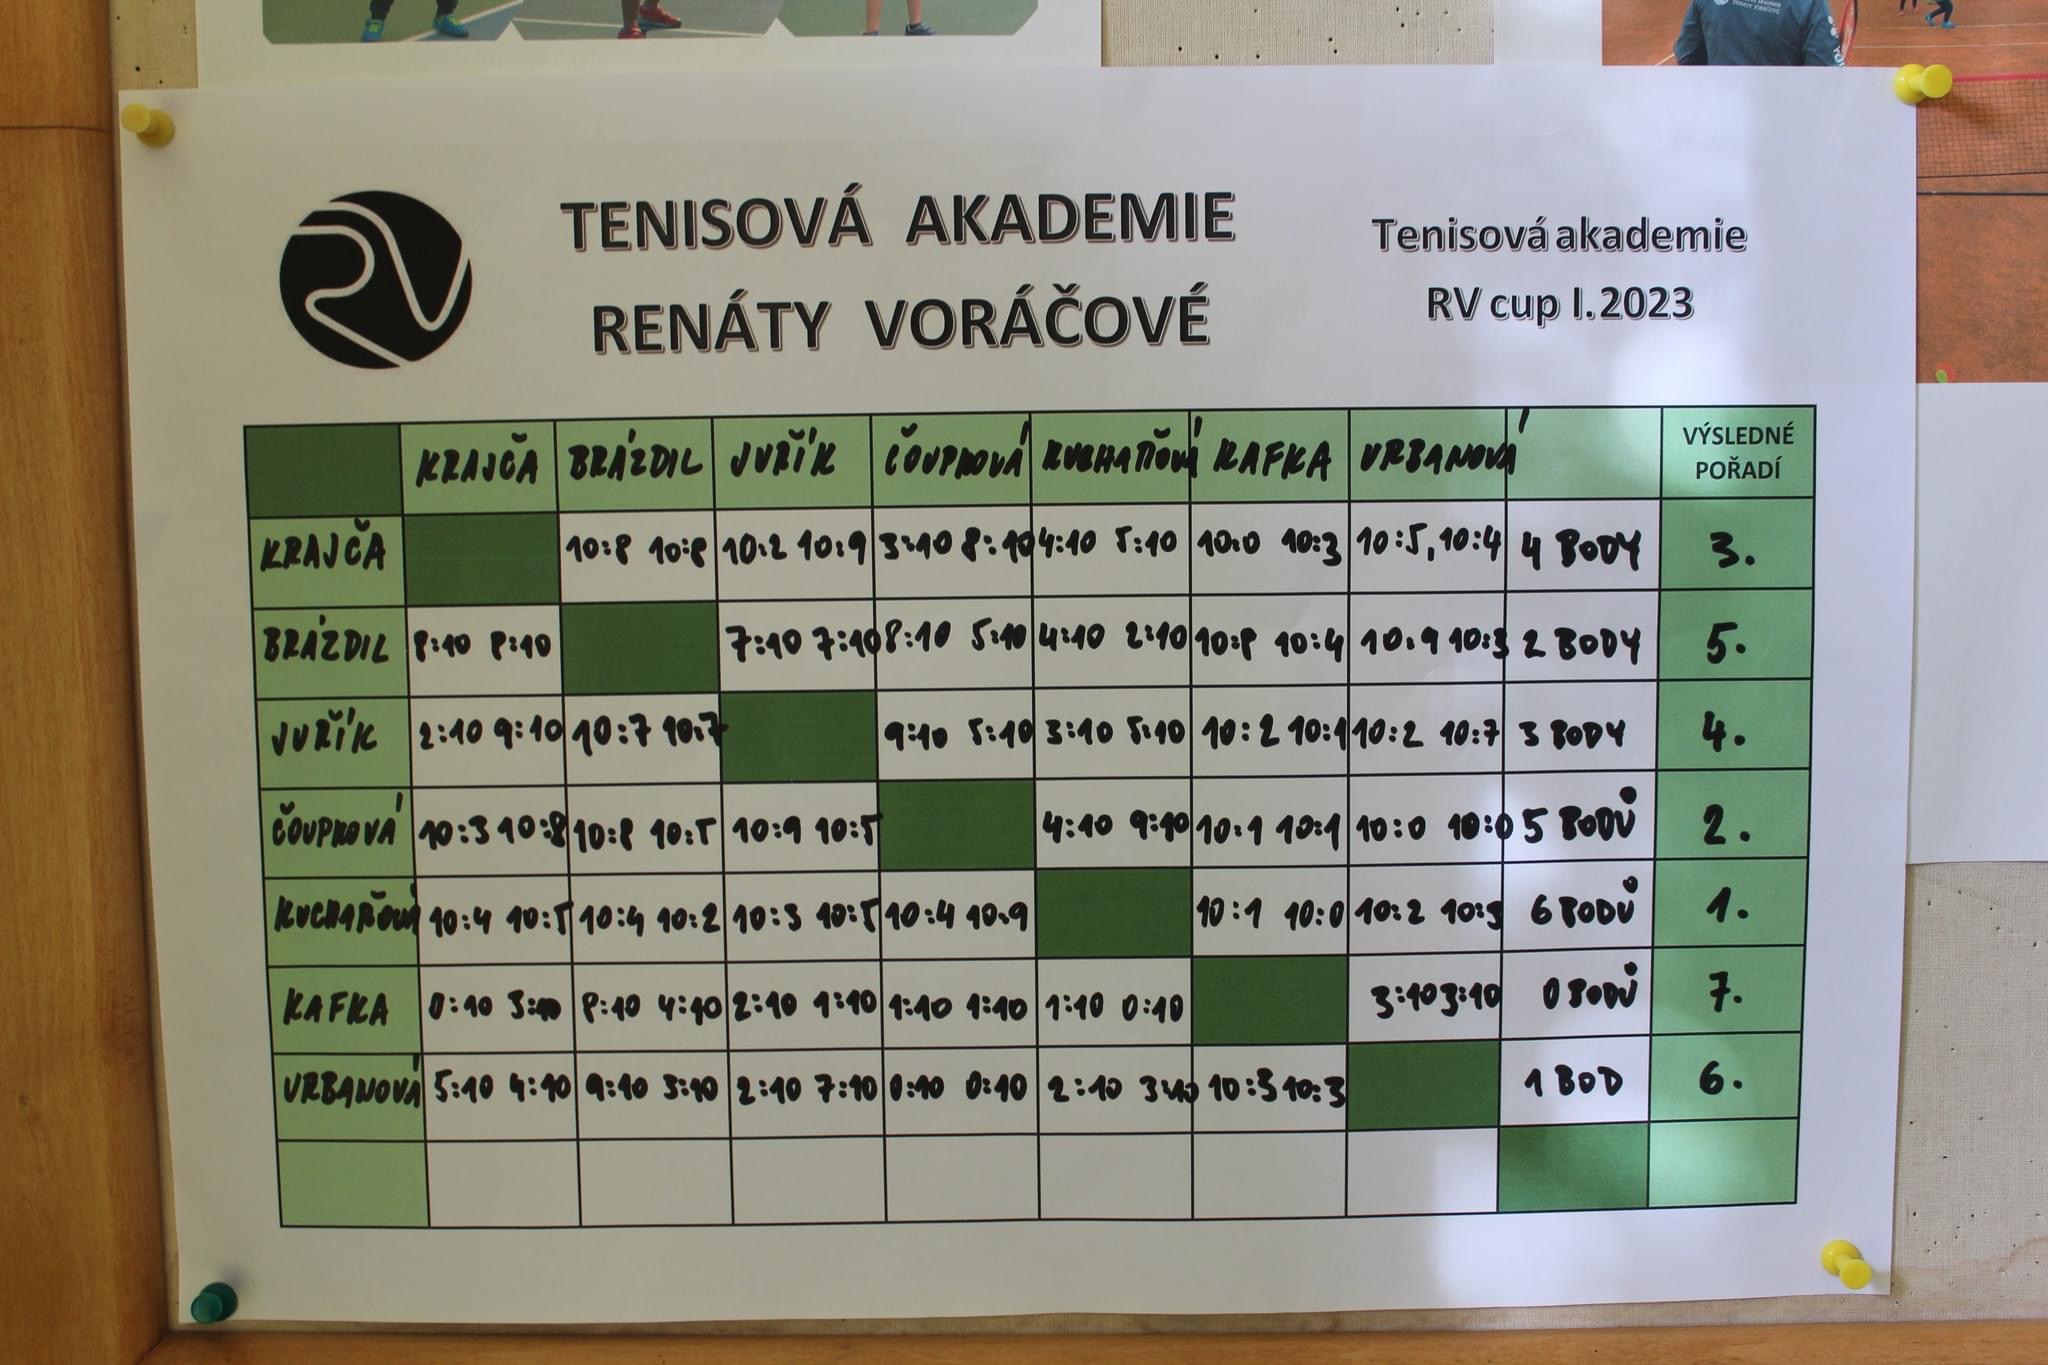 TENISOVÁ AKADEMIE
RENÁTY VORÁČOVÉ
Tenisová akademie
RV cup I. 2023
RV
KRAJČA BRÁZDIL JUŘÍK ČOUPKOVÁ KUCHAŘOVÁ KAFKA URBANOVÁ VÝSLEDNÉ POŘADÍ
KRAJČA 10:8 10:8 10:2 10:9 3:10 8:10 4:10 5:10 10:0 10:3 10:5, 10:4 4 BODY 3.
BRÁZDIL 8:10 8:10 7:10 7:10 8:10 5:10 4:10 2:10 10:8 10:4 10:9 10:3 2 BODY 5.
JUŘÍK 2:10 9:10 10:7 10:7 9:10 5:10 3:10 5:10 10:2 10:1 10:2 10:7 3 BODY 4.
ČOUPKOVÁ 10:3 10:8 10:8 10:5 10:9 10:5 4:10 9:10 10:1 10:1 10:0 10:0 5 BODŮ 2.
KUCHAŘOVÁ 10:4 10:5 10:4 10:2 10:3 10:5 10:4 10:9 10:1 10:0 10:2 10:3 6 BODŮ 1.
KAFKA 0:10 3:10 8:10 4:10 2:10 1:10 1:10 1:10 1:10 0:10 3:10 3:10 0 BODŮ 7.
URBANOVÁ 5:10 4:10 9:10 3:10 2:10 7:10 0:10 0:10 2:10 3:10 10:3 10:3 1 BOD 6.